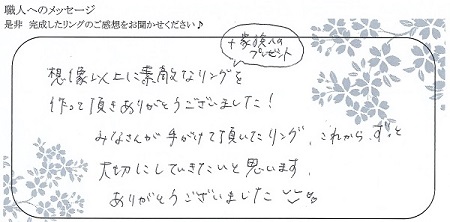 職人へのメッセージ
是非 完成したリングのご感想をお聞かせください♪
+家族への
プレゼント
想像以上に素敵なリングを
作って頂きありがとうございました!
みなさんが手がけて頂いたリング、これから、ずっと
大切にしていきたいと思います。
ありがとうございました